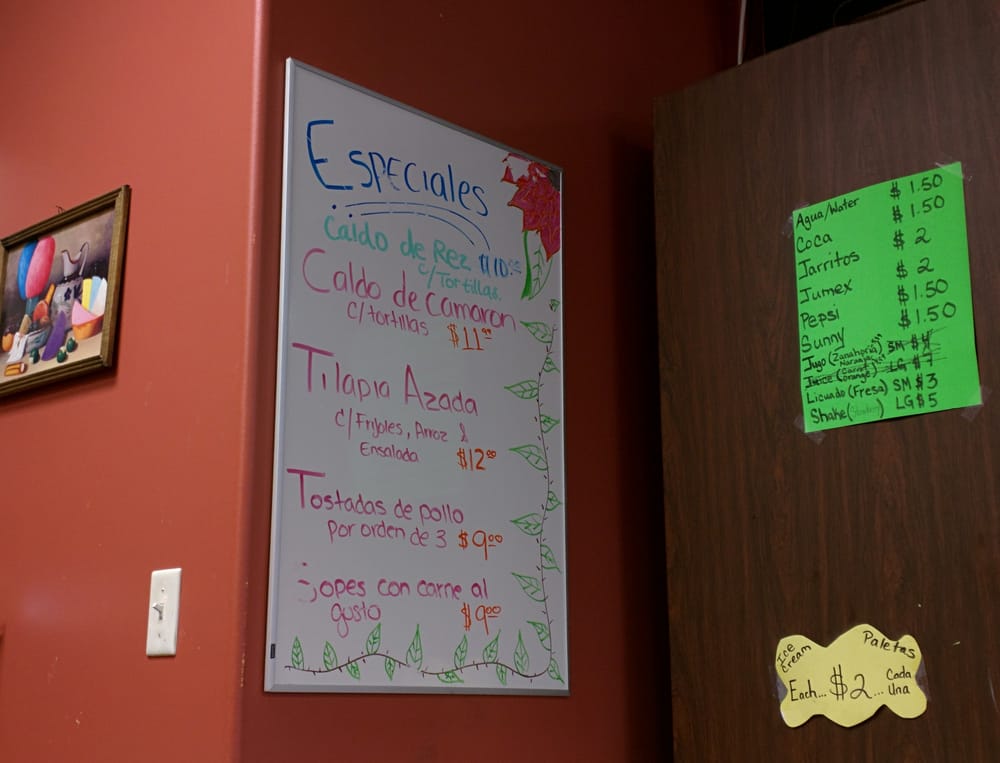 Especiales
Caldo de Rez $10.00
c/Tortillas.
Caldo de Camaron
c/tortillas $11.00
Tilapia Azada
c/Frijoles, Arroz &
Ensalada $12.00
Tostadas de pollo
por orden de 3 $9.00
Sopes con carne al
gusto $9.00
Agua/Water $1.50
Coca $1.50
Jarritos $2
Jumex $2
Pepsi $1.50
Sunny $1.50
Jugo (Zanahoria Naranja) SM $4
Juice (Carrot Orange) LG $7
Licuado (Fresa) SM $3
Shake (Strawberry) LG $5
Ice Cream Paletas
Each... $2... Cada Una